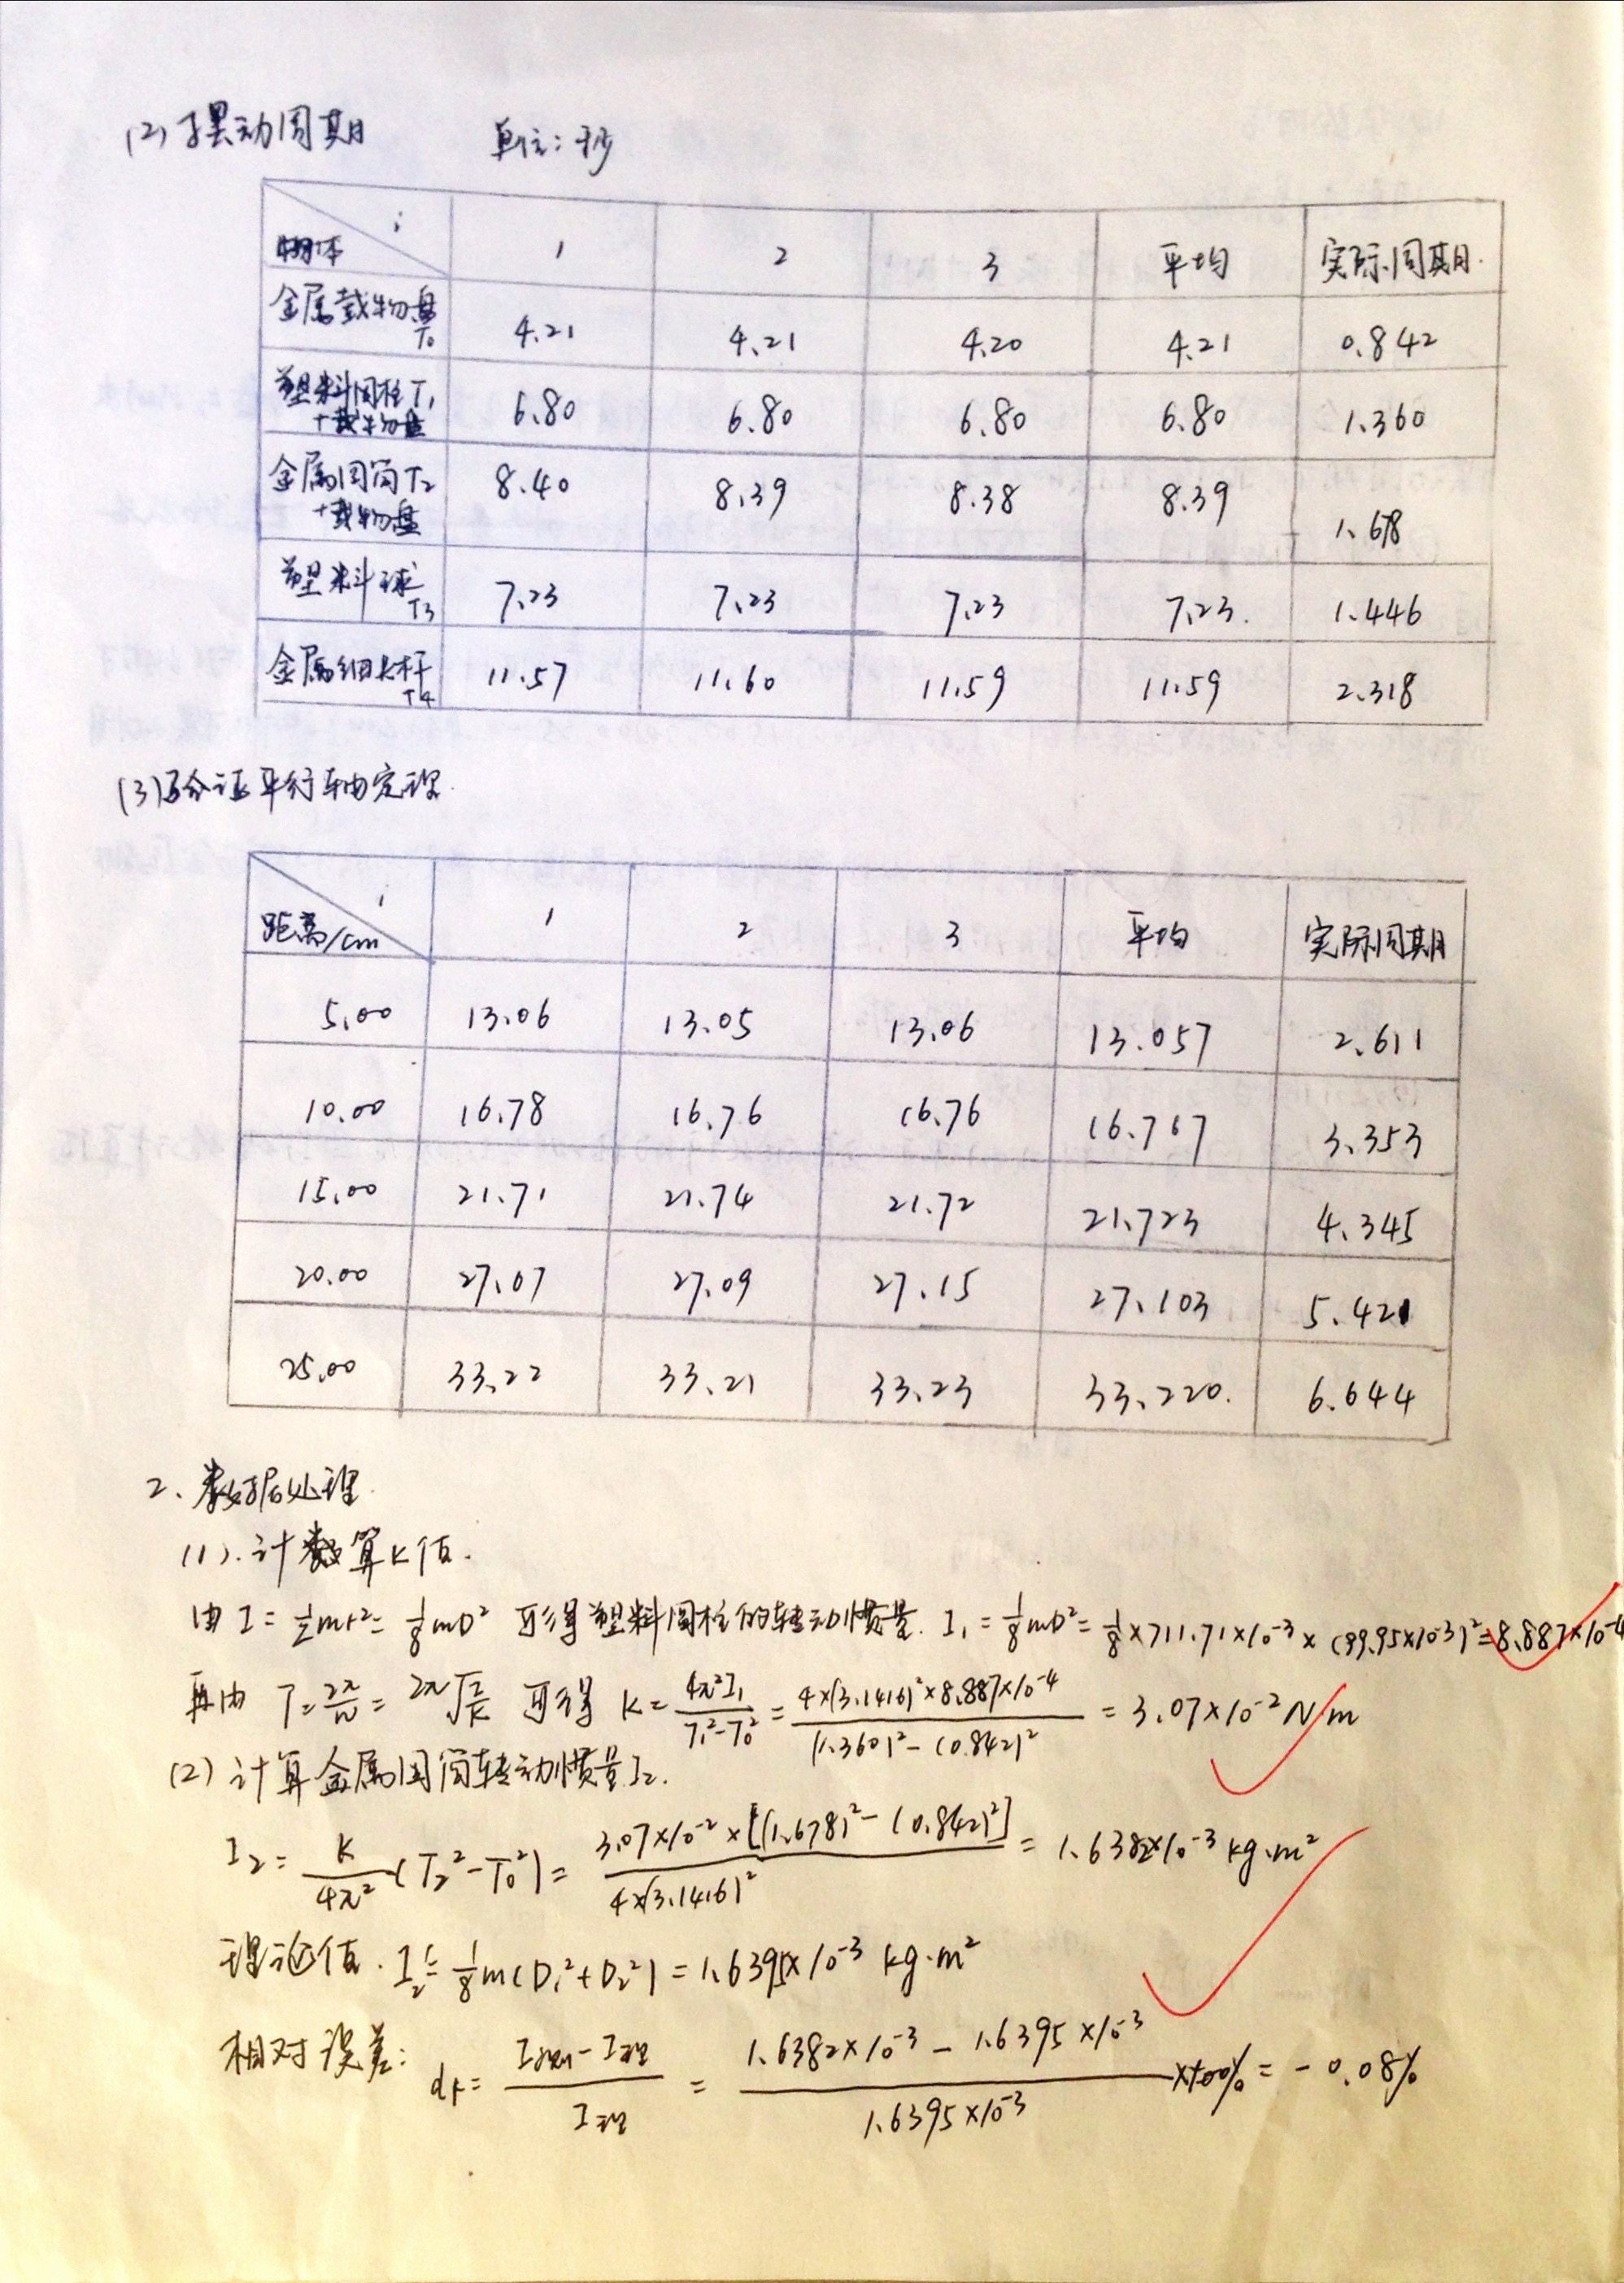 (2) 摆动周期 单位：秒
物体 i 1 2 3 平均 实际周期
金属载物盘 T₀ 4.21 4.21 4.20 4.21 0.842
塑料圆柱T₁+载物盘 6.80 6.80 6.80 6.80 1.360
金属圆筒T₂+载物盘 8.40 8.39 8.38 8.39 1.678
塑料球 T₃ 7.23 7.23 7.23 7.23 1.446
金属细长杆 T₄ 11.57 11.60 11.59 11.59 2.318
(3) 验证平行轴定理
距离/cm i 1 2 3 平均 实际周期
5.00 13.06 13.05 13.06 13.057 2.611
10.00 16.78 16.76 16.76 16.767 3.353
15.00 21.71 21.74 21.72 21.723 4.345
20.00 27.07 27.09 27.15 27.103 5.421
25.00 33.22 33.21 33.23 33.220 6.644
2、数据处理
(1). 计算K值.
由 I = ½mr² = ⅛mD² 可得塑料圆柱的转动惯量. I₁ = ⅛mD² = ⅛×711.71×10⁻³×(99.95×10⁻³)² = 8.887×10⁻⁴
再由 T = 2π/ω = 2π√(I/K) 可得 K = 4π²I₁/(T₁²-T₀²) = 4×(3.1416)²×8.887×10⁻⁴/((1.360)²-(0.842)²) = 3.07×10⁻² N/m
(2) 计算金属圆筒转动惯量I₂.
I₂ = K/4π² (T₂²-T₀²) = 3.07×10⁻²×[(1.678)²-(0.842)²]/4×(3.1416)² = 1.6382×10⁻³ kg·m²
理论值. I₂' = ⅛m(D₁²+D₂²) = 1.6395×10⁻³ kg·m²
相对误差: dr = (I测-I理)/I理 = (1.6382×10⁻³ - 1.6395×10⁻³)/1.6395×10⁻³ ×100% = -0.08%